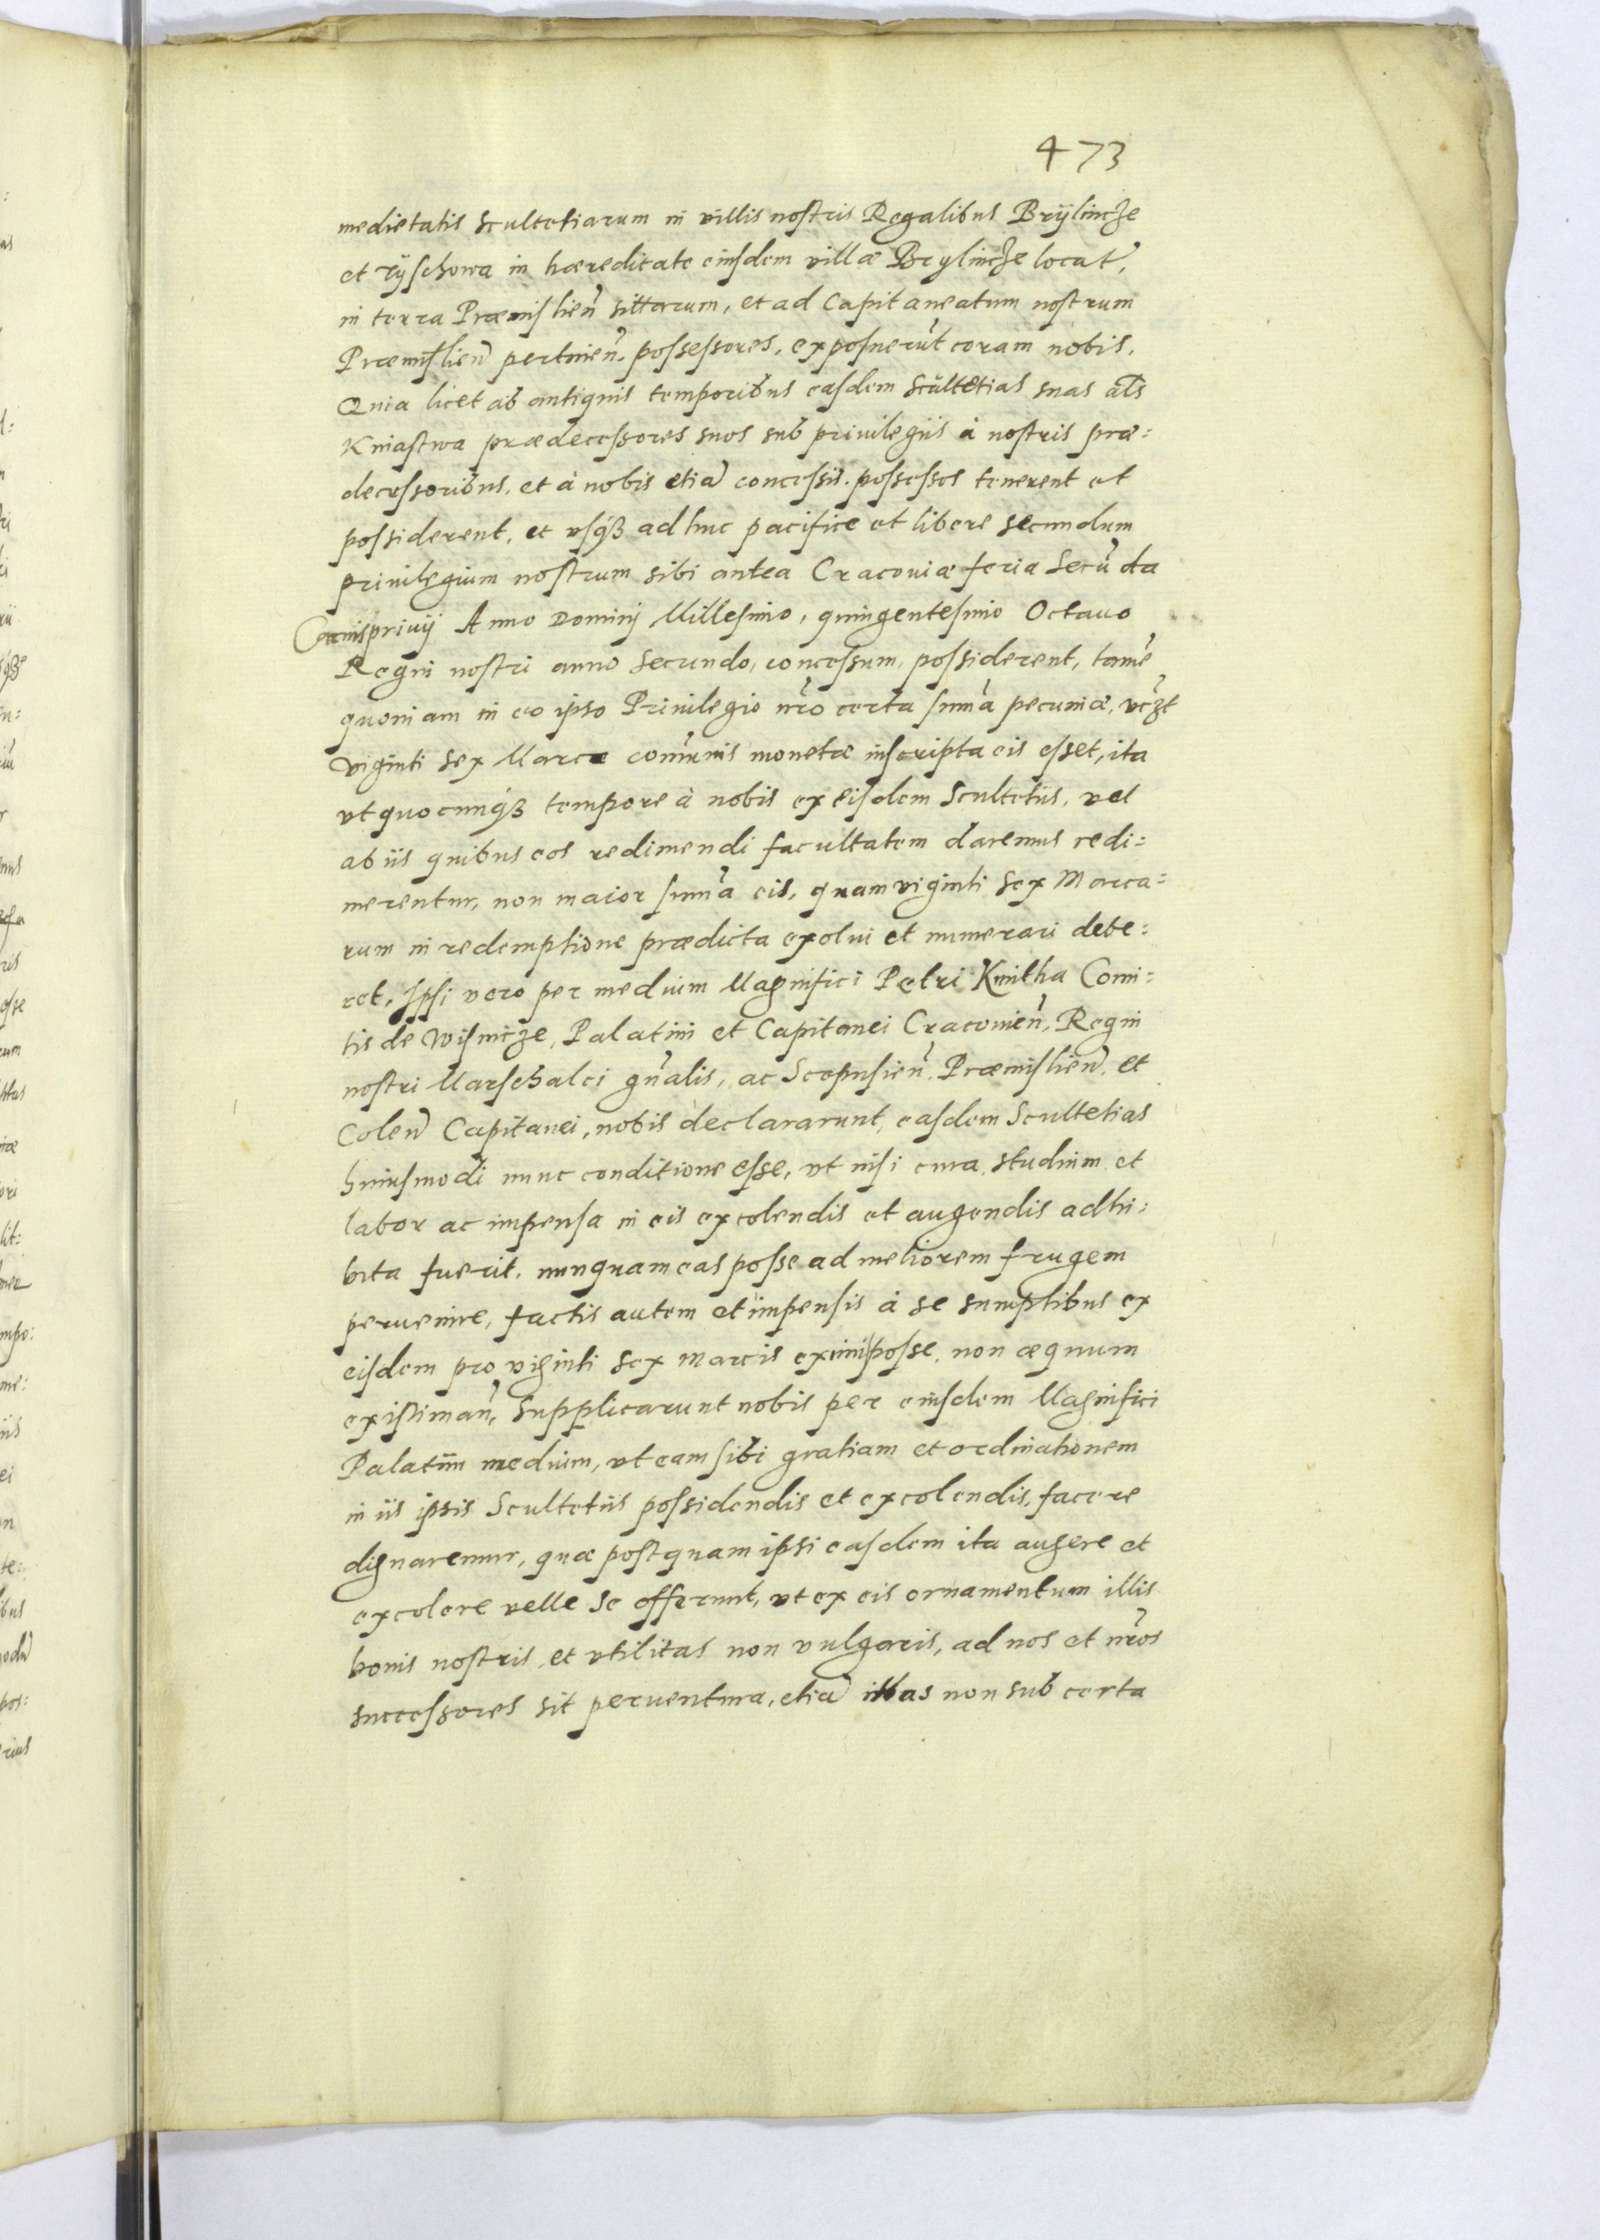 473
medietatis scultetiarum in villis nostris Regalibus Brÿlincze
et rÿschowa in hæreditate eiusdem villæ Brylincze locat̃,
in terra Præmislien̄ sittarum, et ad Capitaneatum nostrum
Præmislien̄ pertinen̄. possessores, exposuerūt coram nobis,
Quia licet ab antiquis temporibus easdem scultetias suas al̄s
Kniastwa prædecessores suos sub priuilegijs à nostris præ:
decessoribus, et à nobis etiā concessis. possessos tenerent et
possiderent, et vsq́ꝫ adhuc pacifice et libere secundum
priuilegium nostrum sibi antea Cracouiæ feria Secūda
Carnispriuij Anno Dominj Millesimo, quingentesimo Octauo
Regni nostri anno Secundo, concessum, possiderent, tamē
quoniam in eo ipso Priuilegio nr̄o certa sum̄a pecuniæ, vcꝫt
viginti sex Marcæ com̄unis monetæ inscripta eis esset, ita
vt quocunq́ꝫ tempore à nobis ex eisdem Scultetiis, vel
ab iis quibus eos redimendi facultatem daremus redi:
merentur, non maior sum̄a eis, quam viginti Sex Marca:
rum in redemptione prædicta exolui et numerari debe:
ret, Ipsi vero per medium Magnifici Petri Kmitha Comi:
tis de Wisnicze, Palatini et Capitanei Cracouien̄, Regni
nostri Marschalci gn̄alis, ac Scepusien̄. Præmislien̄, et
Colen̄ Capitanei, nobis declararunt, easdem Scultetias
huiusmodi nunc conditione esse, vt nisi cura, studium et
labor ac impensa in eis excolendis et augendis adhi:
bita fuerit, nunquam eas posse ad meliorem frugem
peruenire, factis autem et impensis à se sumptibus ex
eisdem pro viginti sex marcis eximi posse, non æquum
existiman̄, Supplicarunt nobis per eiusdem Magnifici
Palatini medium, vt eam sibi gratiam et ordinationem
in iis ipsis Scultetiis possidendis et excolendis, facere
dignaremur, quæ postquam ipsi easdem ita augere et
excolere velle se offerunt, vt ex eis ornamentum illis
bonis nostris, et vtilitas non vulgaris, ad nos et nr̄os
successores sit peruentura, etiā illas non sub certa